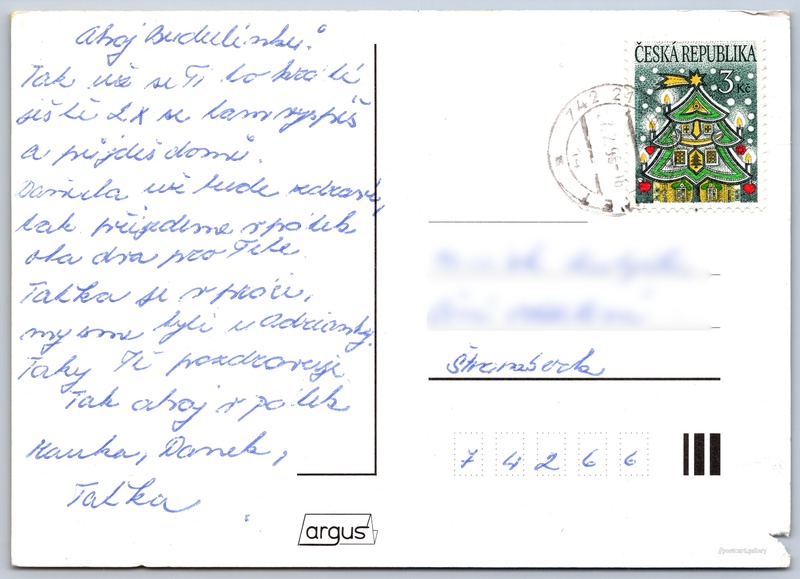 Ahoj Budulínku!
Tak už se Ti to krátí
ještě 2x se tam vyspíš
a přijdeš domů.
Daniela už bude zdravá,
tak přijedeme v pátek
oba dva pro Tebe.
Taťka je v práci,
my sme byli u Adrianky.
Taky Tě pozdravuje
Tak ahoj v pátek
Mamka, Danek,
Taťka
argus
ČESKÁ REPUBLIKA
3 Kč
742 2
Štramberk
7 4 2 6 6
//postcard.gallery